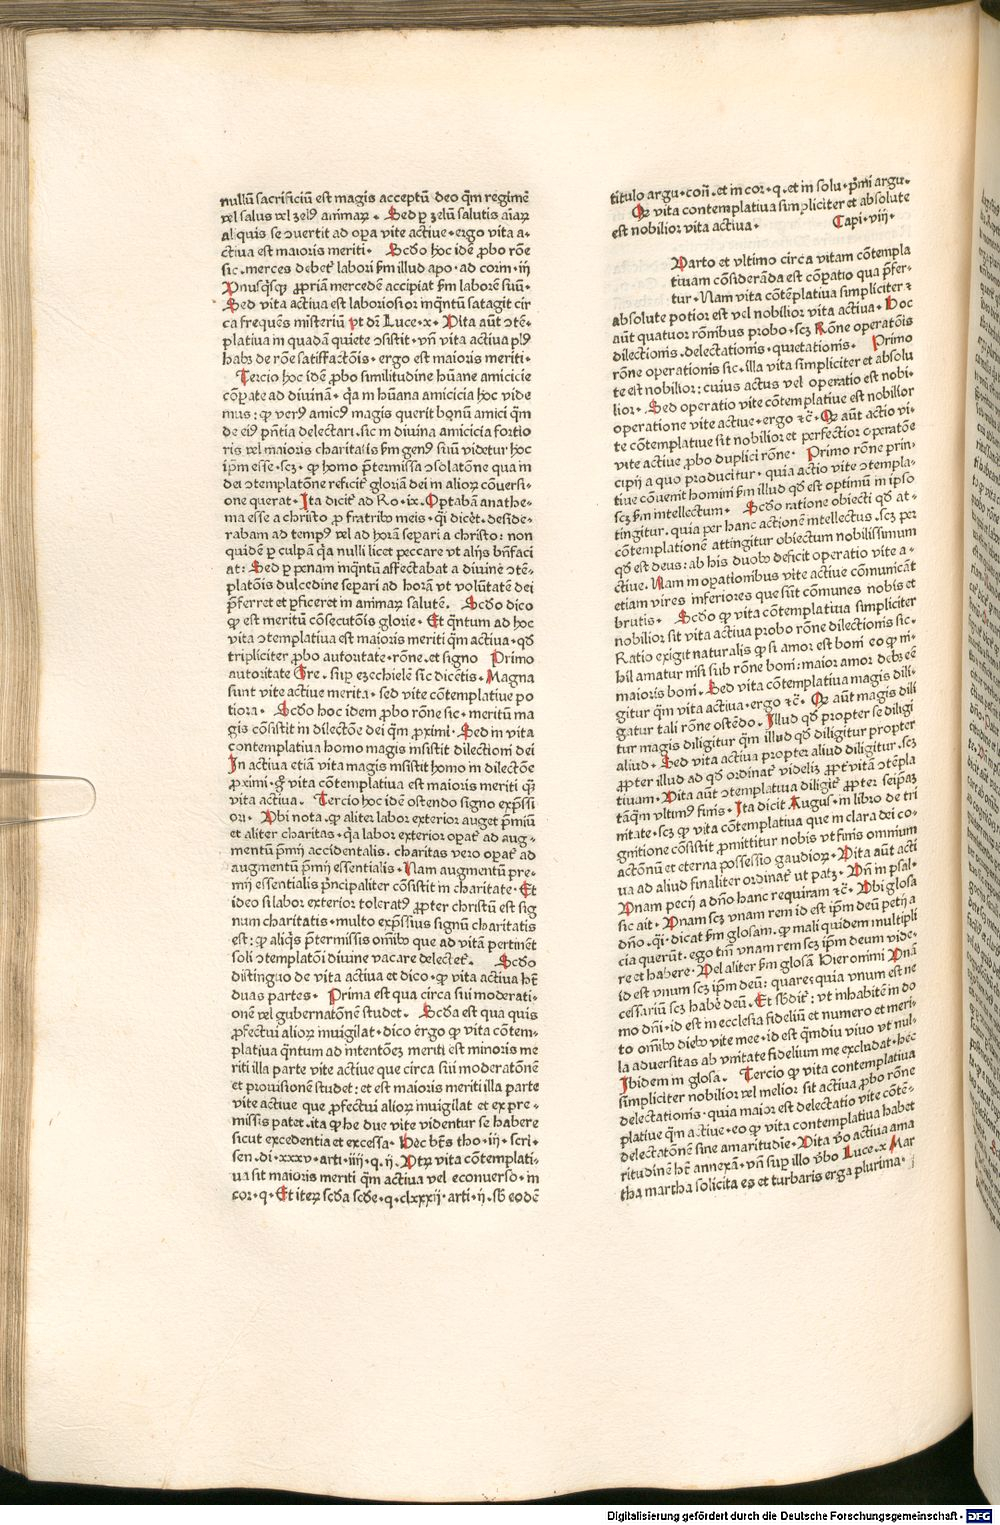 nullū sacrificiū est magis acceptū deo q̄m regimē
vel salus vel zelꝰ aīmaꝝ. Sed ꝑ zelū salutis aīaꝝ
aliquis se ɔvertit ad oꝑa vite active. ergo vita a-
ctiva est maioris meriti. Scd̄o hoc idē ꝓbo rōe
sic. merces debet᷑ labori ẜm illud apo. ad corin. iij
Vnusq̄sqꝫ ꝓpriā mercedē accipiat ẜm laborē suū.
Sed vita activa est laboriosior inq̄ntū satagit cir
ca frequēs misteriū vt dr̄ Luce. x. Vita aūt ɔtē-
plativa in quadā quiete ɔsistit. vn̄ vita activa plꝰ
habꝫ de rōe satisfactōis. ergo est maioris meriti.
Tercio hoc idē ꝓbo similitudine hūane amicicie
cōꝑate ad divinā. q̄a in hūana amicicia hoc vide
mus: ꝙ verꝰ amicꝰ magis querit bonū amici q̄m
de eiꝰ pn̄tia delectari. sic in divina amicicia fortio
ris vel maioris charitatis ẜm genꝰ suū videtur hoc
ip̄m esse. scꝫ. ꝙ homo p̄termissa ɔsolatōne qua in
dei ɔtemplatōne reficit᷑ gloriā dei in alioꝝ cōversi-
one querat. Ita dicit᷑ ad Ro. ix. Optabā anathe-
ma esse a christo ꝓ fratribꝰ meis. q̄i dicēt. deside-
rabam ad tempꝰ vel ad horā seꝑari a christo: non
quidē ꝑ culpā q̄a nulli licet peccare vt alijs bn̄faci
at: Sed ꝑ penam inq̄ntū affectabat a divine ɔtē-
platōis dulcedine seꝑari ad horā vt volūtatē dei
p̄ferret et ꝑficeret in animaꝝ salutē. Scd̄o dico
ꝙ est meritū cōsecutōis glorie. Et q̄ntum ad hoc
vita ɔtemplativa est maioris meriti q̄m activa. qd̄
tripliciter ꝓbo autoritate. rōne. et signo Primo
autoritate Gre. suꝑ ezechielē sic dicētis. Magna
sunt vite active merita. sed vite cōtemplative po
tiora. Scd̄o hoc idem ꝓbo rōne sic. meritū ma
gis cōsistit in dilectōe dei q̄m ꝓximi. Sed in vita
contemplativa homo magis insistit dilectioni dei
In activa etiā vita magis insistit homo in dilectōe
ꝓximi. gͦ vita cōtemplativa est maioris meriti q̄ꝫ
vita activa. Tercio hoc idē ostendo signo exp̄ssi
ori. Vbi nota. ꝙ aliter labor exterior auget p̄miū
et aliter charitas. q̄a labor exterior oꝑat᷑ ad aug-
mentū p̄mij accidentalis. charitas vero oꝑat᷑ ad
augmentū p̄mij essentialis. Nam augmentū pre-
mij essentialis p̄ncipaliter cōsistit in charitate. Et
ideo si labor exterior toleratꝰ ꝓpter christū est sig
num charitatis. multo exp̄ssius signū charitatis
est: ꝙ aliq̄s p̄termissis om̄ibꝰ que ad vitā pertinēt
soli ɔtemplatōi divine vacare delectet᷑. Scd̄o
distinguo de vita activa et dico. ꝙ vita activa hꝫ
duas partes. Prima est qua circa sui moderati-
onē vel gubernatōnē studet. Scd̄a est qua quis
ꝓfectui alioꝝ invigilat. dico ergo ꝙ vita cōtem-
plativa q̄ntum ad intentōeꝫ meriti est minoris me
riti illa parte vite active que circa sui moderatōnē
et provisionē studet: et est maioris meriti illa parte
vite active que ꝓfectui alioꝝ invigilat et ex pre-
missis patet. ita ꝙ he due vite videntur se habere
sicut excedentia et excessa. Hec bt̄s tho. iij. scri-
sen. di. xxxv. arti. iiij. q. ij. Vtꝝ vita cōtemplati-
va sit maioris meriti q̄m activa vel econverso. in
cor. q. Et iteꝝ scd̄a scd̄e. q. clxxxij. arti. ij. sb̄ eodē
titulo argu. con̄. et in cor. q. et in solu. p̄mi argu.
Qꝫ vita contemplativa simpliciter et absolute
est nobilior vita activa. Capi. viij.
Varto et vltimo circa vitam cōtempla
tivam cōsiderāda est cōꝑatio qua p̄fer-
tur. Nam vita cōtēplativa simpliciter ⁊
absolute potior est vel nobilior vita activa. Hoc
aūt quatuor rōnibus probo. scꝫ Rōne operatōis
dilectionis. delectationis. quietationis. Primo
rōne operationis sic. illa vita simpliciter et absolu
te est nobilior: cuius actus vel operatio est nobi-
lior. Sed operatio vite cōtemplative est nobilior
operatione vite active. ergo ⁊c̄. Qꝫ aūt actio vi-
te contemplative sit nobilior et perfectior operatōe
vite active ꝓbo duplici rōne. Primo rōne prin-
cipij a quo producitur. quia actio vite ɔtempla-
tive cōvenit homini ẜm illud qd̄ est optimū in ipso
scꝫ ẜm intellectum. Scd̄o ratione obiecti qd̄ at-
tingitur. quia per hanc actionē intellectus. scꝫ per
cōtemplationē attingitur obiectum nobilissimum
qd̄ est deus: ab his duobꝰ deficit operatio vite a-
ctive. Nam in oꝑationibus vite active cōmunicāt
etiam vires inferiores que sūt cōmunes nobis et
brutis. Scd̄o ꝙ vita cōtemplativa simpliciter
nobilior sit vita activa probo rōne dilectionis sic.
Ratio exigit naturalis ꝙ si amor est boni eo ꝙ ni-
hil amatur nisi sub rōne boni: maior amor debꝫ eē
maioris boni. Sed vita cōtemplativa magis dili-
gitur q̄m vita activa. ergo ⁊c̄. Qꝫ aūt magis dili
gatur tali rōne ostēdo. Illud qd̄ propter se diligi
tur magis diligitur q̄m illud qd̄ diligitur propter
aliud. Sed vita activa propter aliud diligitur. scꝫ
ꝓpter illud ad qd̄ ordinat᷑ videliꝫ ꝓpt᷑ vitā ɔtēpla
tivam. Vita aūt ɔtemplativa diligit᷑ ꝓpter seip̄aꝫ
tāq̄m vltimꝰ finis. Ita dicit Augus. in libro de tri
nitate. scꝫ ꝙ vita cōtemplativa que in clara dei co-
gnitione cōsistit ꝓmittitur nobis vt finis omnium
actōnū et eterna possessio gaudioꝝ. Vita aūt acti
va ad aliud finaliter ordinat᷑ ut patꝫ. Vn̄ in psal-
Vnam pecij a dn̄o hanc requiram ⁊c̄. Vbi glosa
sic ait. Vnam scꝫ vnam rem id est ip̄m deū petij a
dn̄o. q̄i. dicat ẜm glosam. ꝙ mali quidem multipli
cia querūt. ego tm̄ vnam rem scꝫ ip̄m deum vide-
re et habere. Vel aliter ẜm glosā Hieronimi Vnā
id est vnum scꝫ ip̄m deū: quare: quia vnum est ne
cessariū scꝫ habē deū. Et sbdit᷑: vt inhabitē in do
mo dn̄i. id est in ecclesia fideliū et numero et meri-
to om̄ibꝰ diebꝰ vite mee. id est q̄mdiu vivo vt nul-
la adversitas ab vnitate fidelium me excludat. hec
Ibidem in glosa. Tercio ꝙ vita contemplativa
simpliciter nobilior vel melior sit activa ꝓbo rōne
delectationis. quia maior est delectatio vite cōtē-
plative q̄m active. eo ꝙ vita contemplativa habet
delectatōnē sine amaritudīe. Vita v̄o activa ama
ritudinē hꝫ annexā. vn̄ suꝑ illo v̄bo Luce. x Mar
tha martha solicita es et turbaris erga plurima.
Digitalisierung gefördert durch die Deutsche Forschungsgemeinschaft - DFG